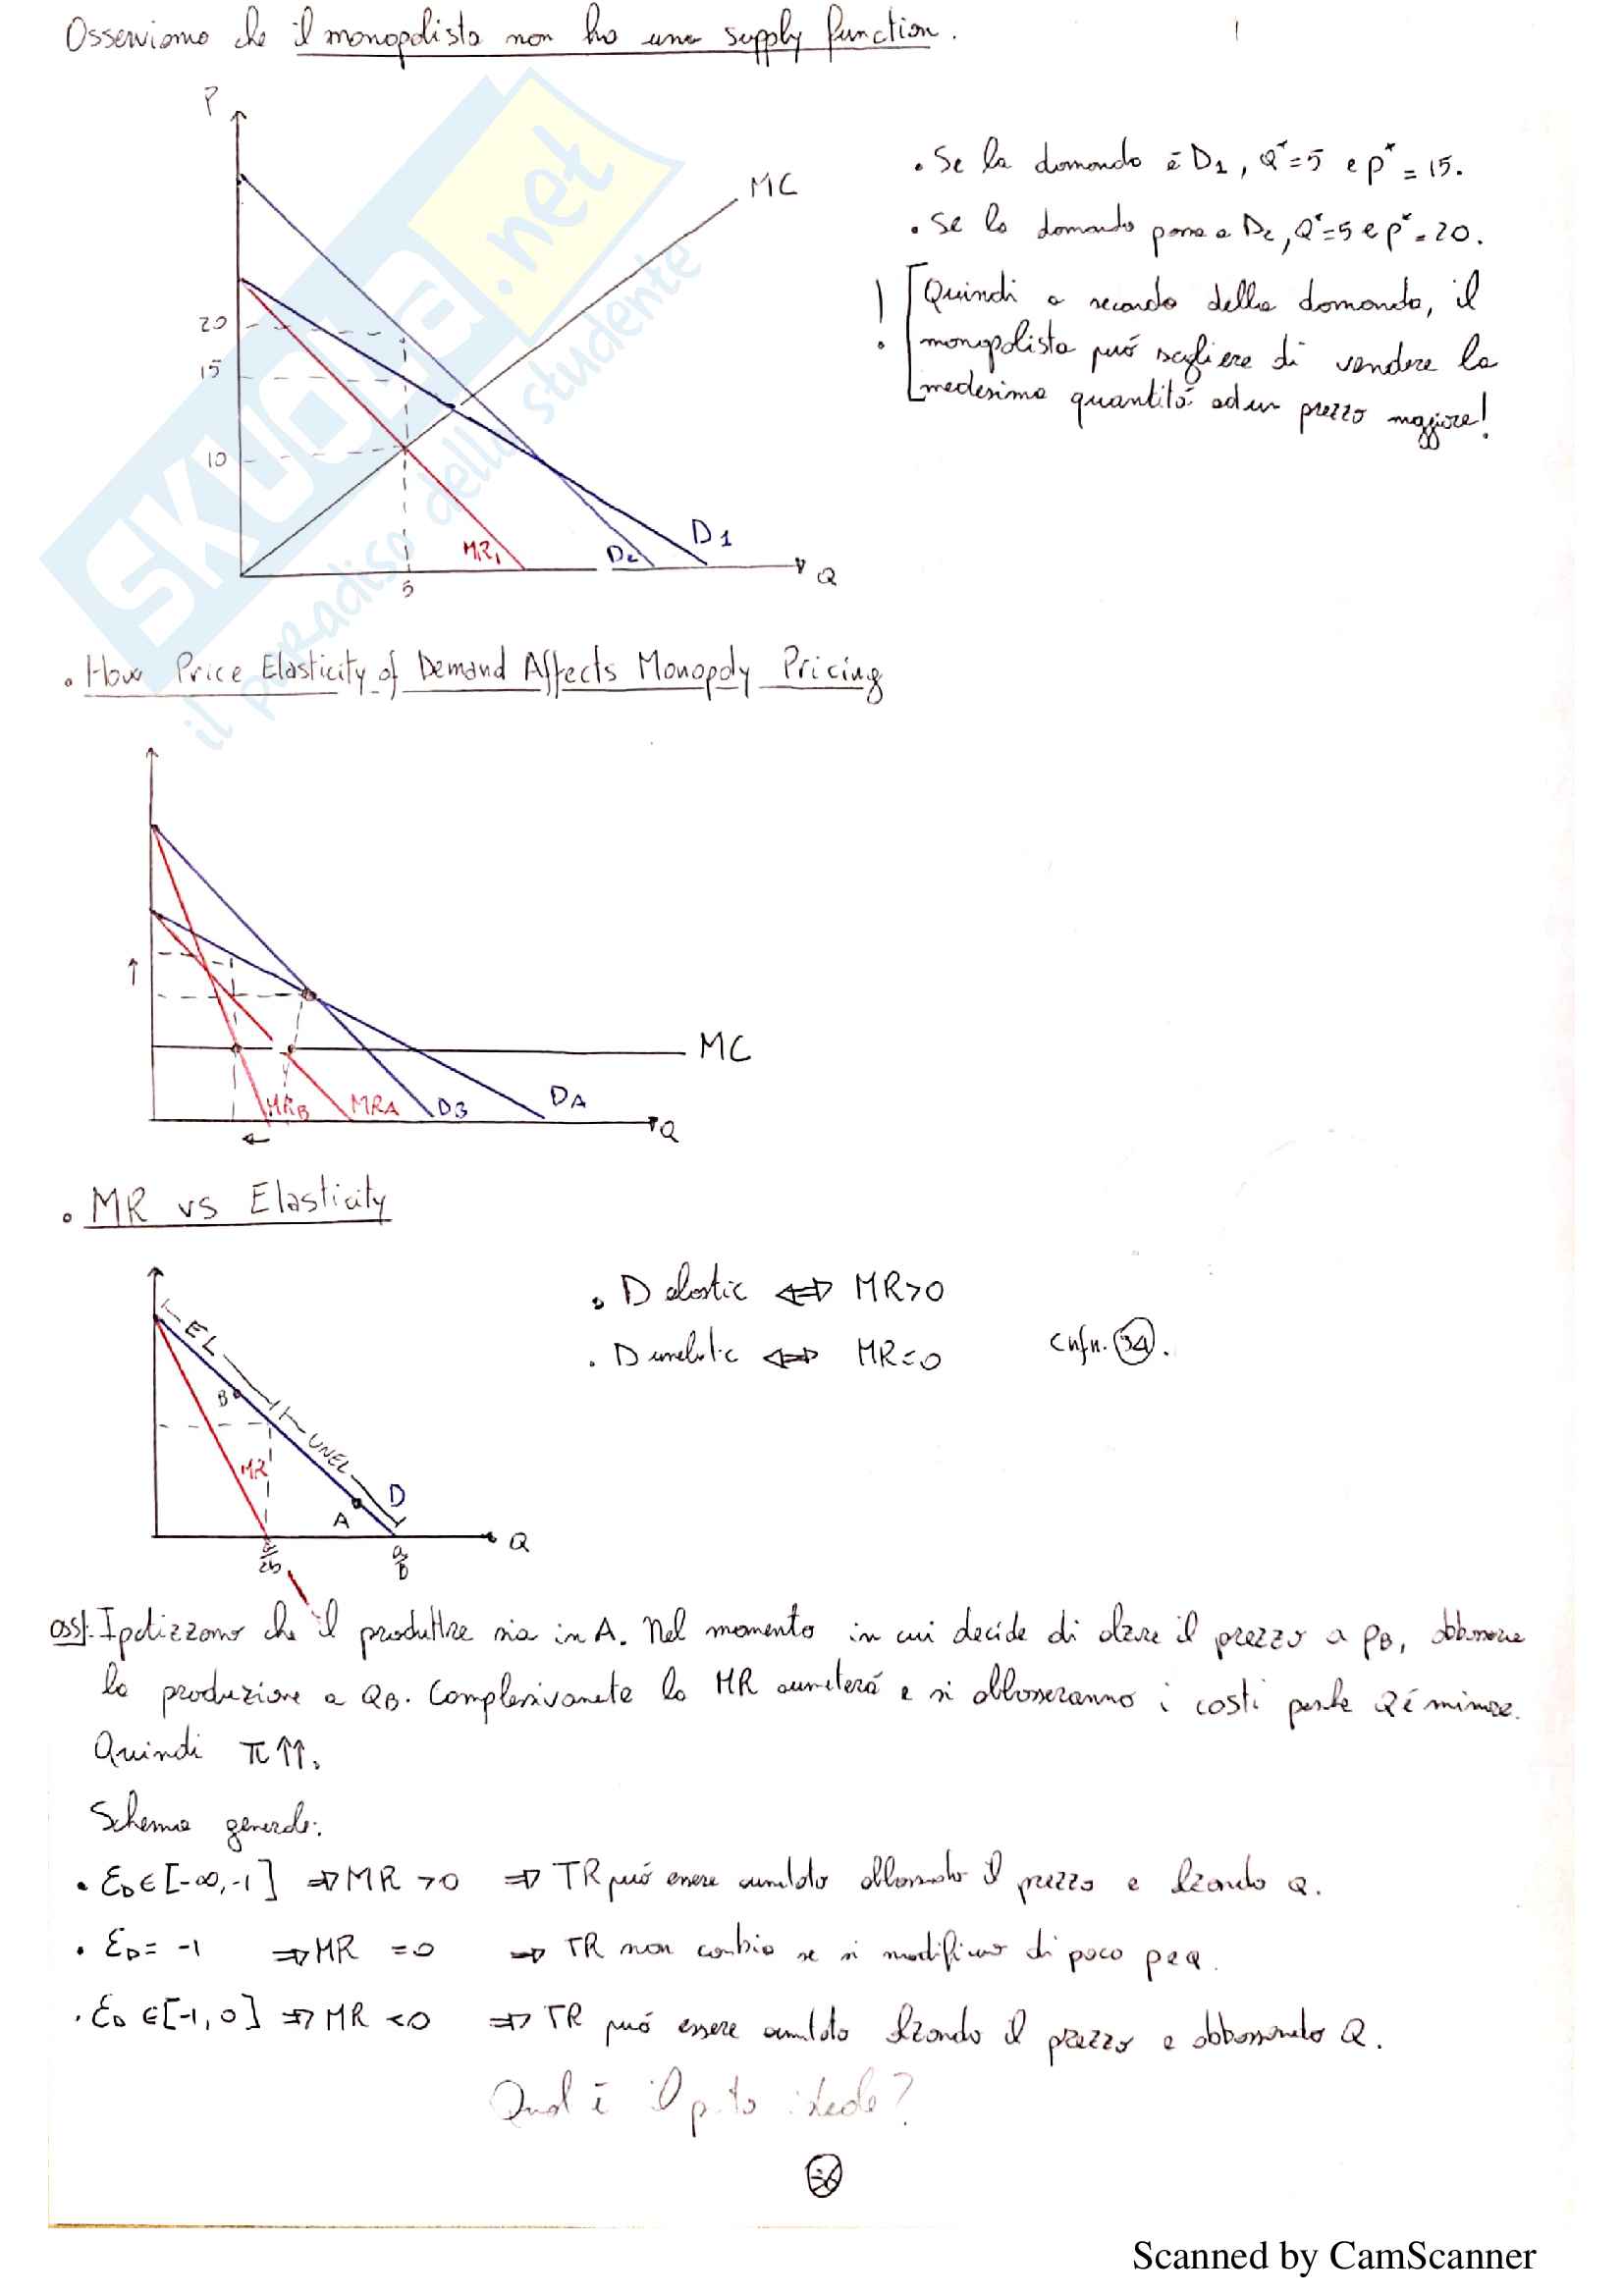 Osserviamo che il monopolista non ha una supply function.
P
MC
20
15
10
MR1
D2
D1
Q
5
SKUOLA.net
il paradiso dello studente
• Se la domanda è D1, Q*=5 e p*=15.
• Se la domanda passa a D2, Q*=5 e p*=20.
! Quindi a seconda della domanda, il
monopolista può scegliere di vendere la
medesima quantità ad un prezzo maggiore!
• How Price Elasticity of Demand Affects Monopoly Pricing
↑
MC
MRB
MRA
DB
DA
Q
←
• MR vs Elasticity
EL
B
UNEL
MR
A
D
Q
a/2b
a/b
• D elastic ⇔ MR>0
• D unelstic ⇔ MR=0
Cnfn. 34.
oss. Ipotizzamo che il produttore sia in A. Nel momento in cui decide di alzare il prezzo a pB, abbassare
la produzione a QB. Complessivamente la MR aumenterà e si abbasseranno i costi perché Q è minore.
Quindi π↑↑.
Schema generale:
• ED∈[-∞,-1] ⇒ MR >0 ⇒ TR può essere aumentato abbassando il prezzo e alzando Q.
• ED= -1 ⇒ MR =0 ⇒ TR non cambia se si modificano di poco p e Q.
• ED∈[-1,0] ⇒ MR <0 ⇒ TR può essere aumentato alzando il prezzo e abbassando Q.
Qual è il p.to ideale?
36
Scanned by CamScanner